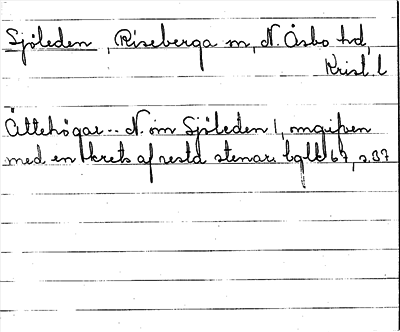 Sjöleden, Riseberga sn, N. Åsbo hd,
Krist. l
Ättehögar -- N. om Sjöleden 1, omgifven
med en krets af resta stenar. 67, s. 37